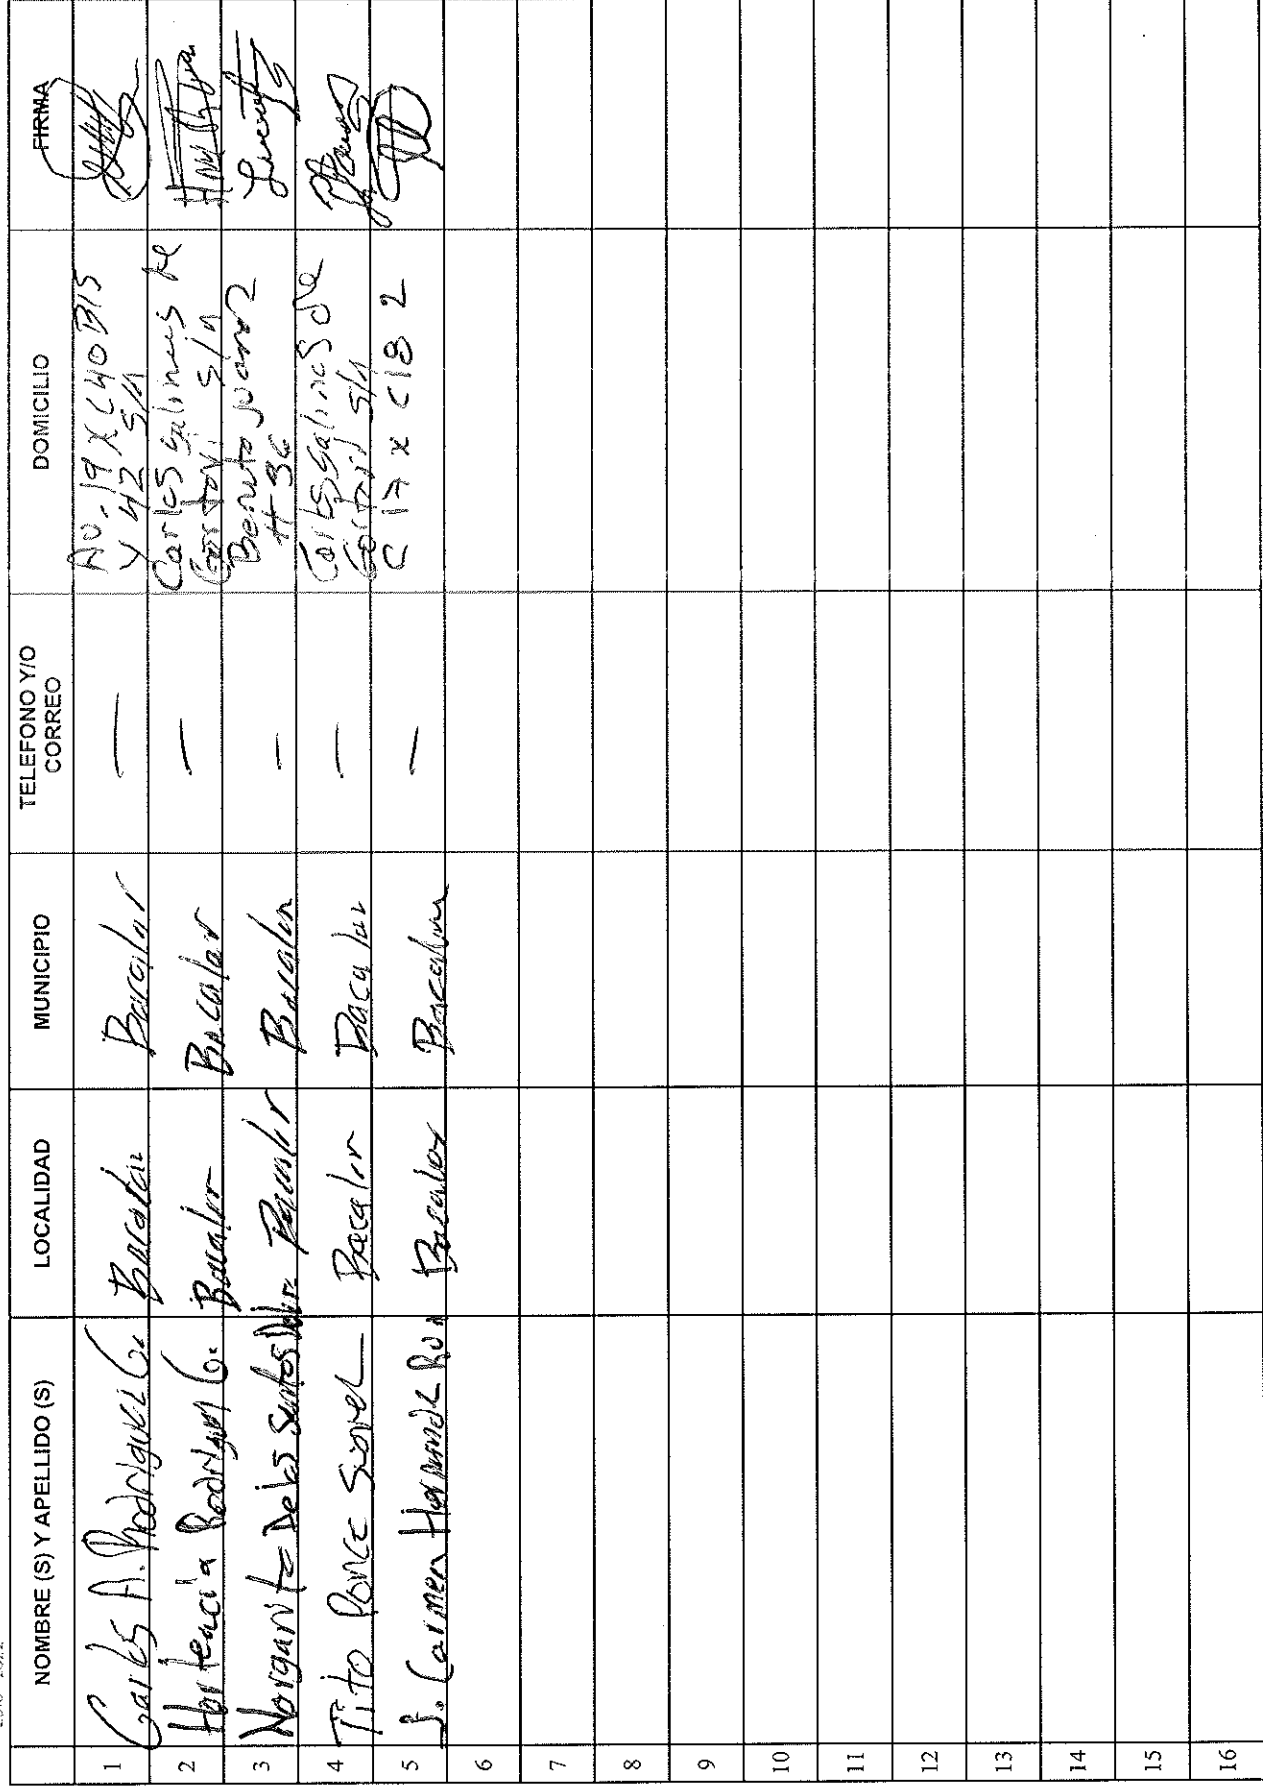 NOMBRE (S) Y APELLIDO (S) LOCALIDAD MUNICIPIO TELEFONO Y/O CORREO DOMICILIO FIRMA
1 Carlos A. Rodriguez G. Bacalar Bacalar — Av. 19 x C40 BIS
y 42 S/n
2 Hortencia Rodriguez G. Bacalar Bacalar — Carlos Salinas de
Gortari S/n
3 Margarita De los Santos Bacalar Bacalar - Benito Juarez
# 36
4 Tito Ponce Bacalar Bacalar — Carlos Salinas de
Gortari S/n
5 J. Carmen Hernandez Bacalar Bacalar — C 17 x C18 2
6
7
8
9
10
11
12
13
14
15
16